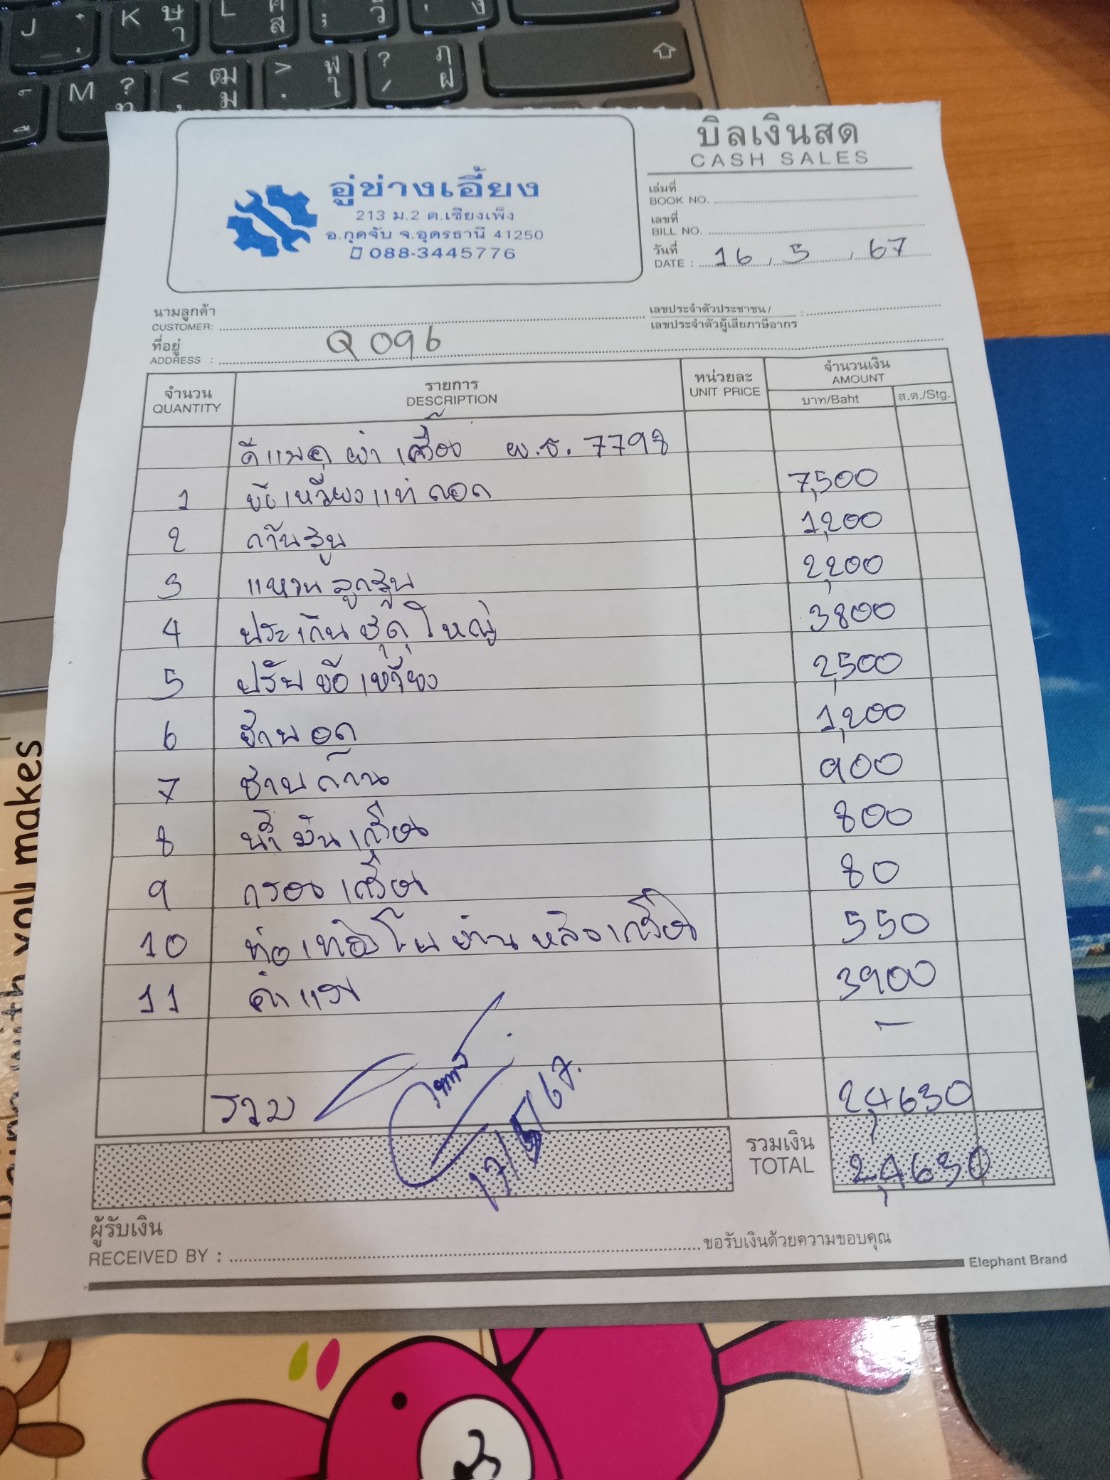 J K ษ L ศ ส ; ว ง
M ? ท < ฒ ม > ฬ ใ ? / ฦ ฝ
บิลเงินสด
CASH SALES
อู่ช่างเอี้ยง
213 ม.2 ต.เชียงเพ็ง
อ.กุดจับ จ.อุดรธานี 41250
088-3445776
เล่มที่
BOOK NO.
เลขที่
BILL NO.
วันที่
DATE : 16 , 5 , 67
นามลูกค้า
CUSTOMER:
เลขประจำตัวประชาชน/
เลขประจำตัวผู้เสียภาษีอากร
ที่อยู่
ADDRESS : Q 096
จำนวน รายการ หน่วยละ จำนวนเงิน
QUANTITY DESCRIPTION UNIT PRICE AMOUNT
บาท/Baht ส.ต./Stg.
ดีแมค ผ่าเครื่อง ผ.ธ. 7798
1 ข้อเหวี่ยงแท้ถอด 7,500
2 ก้านสูบ 1,200
3 แหวนลูกสูบ 2,200
4 ประเก็นชุดใหญ่ 3800
5 ปรับข้อเหวี่ยง 2,500
6 ชาฟอก 1,200
7 ชาบก้าน 900
8 น้ำมันเครื่อง 800
9 กรองเครื่อง 80
10 ท่อเทอร์โบด้านหลังเครื่อง 550
11 ค่าแรง 3900
–
รวม 24,630
รวมเงิน
TOTAL 24,630
17/5/67.
ผู้รับเงิน
RECEIVED BY :
ขอรับเงินด้วยความขอบคุณ
Elephant Brand
with you makes